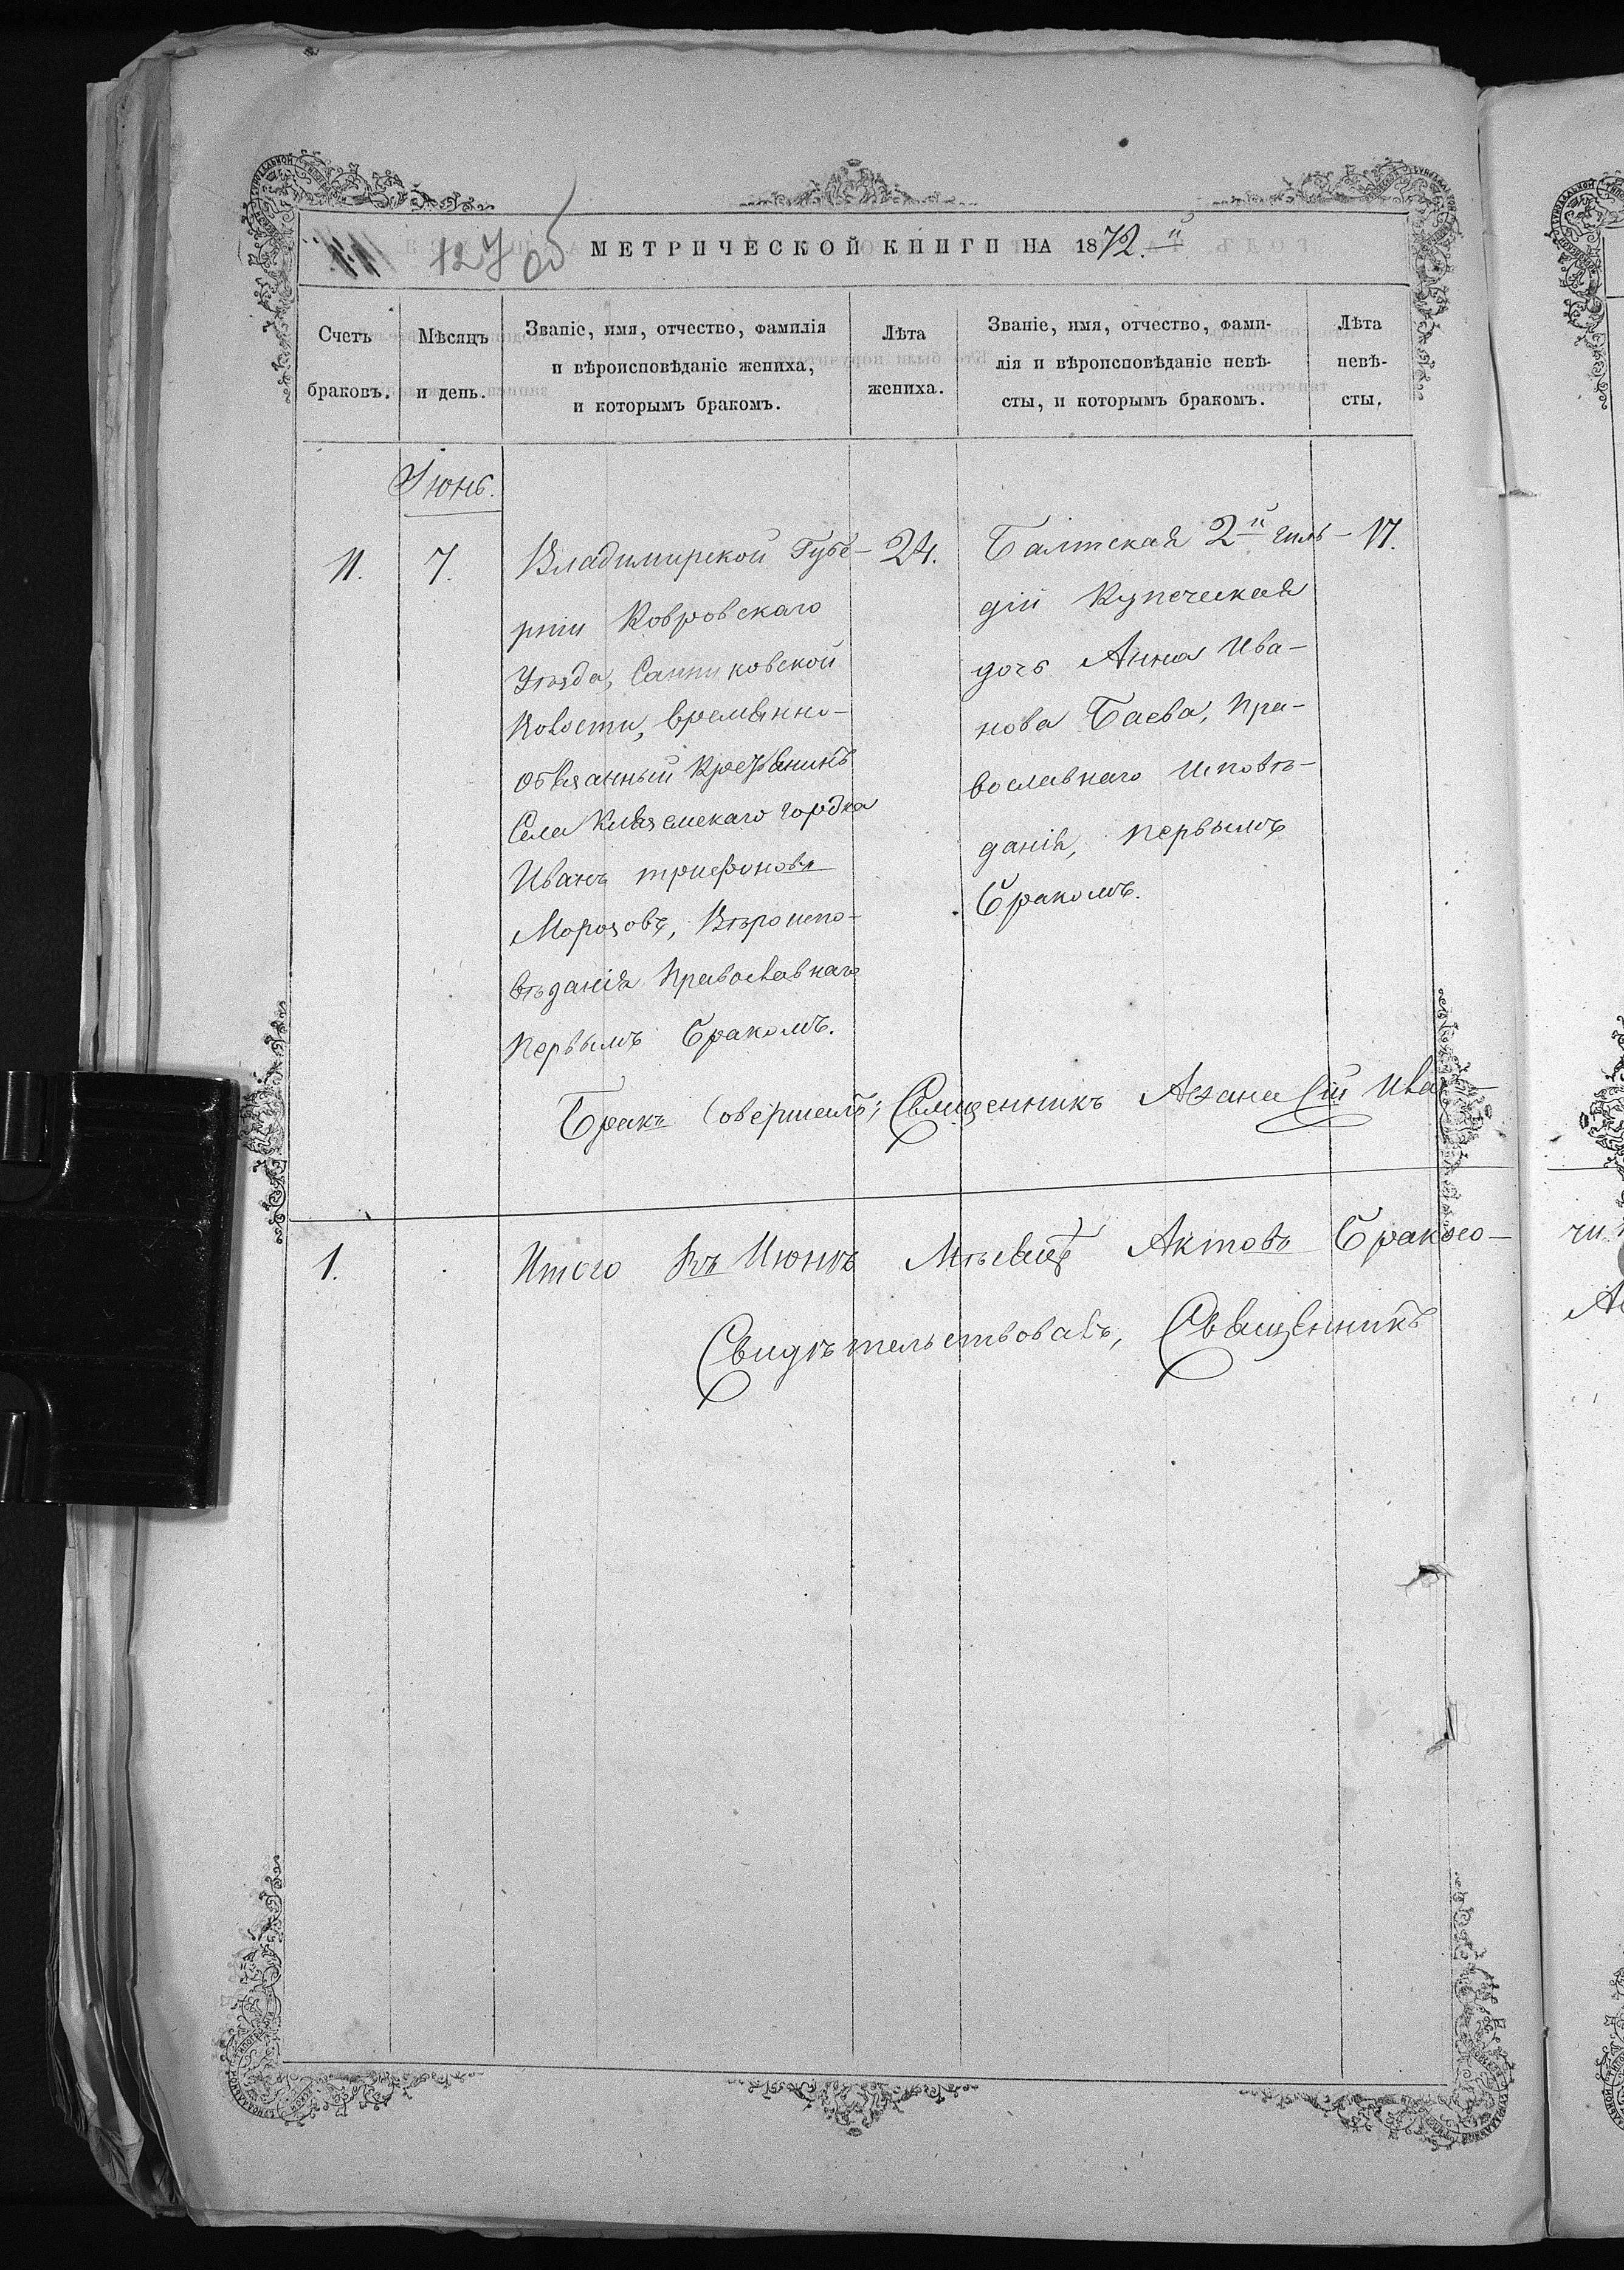 127 об
МЕТРИЧЕСКОЙ КНИГИ НА 1872.й
Счетъ
браковъ.
Мѣсяцъ
и день.
Званіе, имя, отчество, фамилія
и вѣроисповѣданіе жениха,
и которымъ бракомъ.
Лѣта
жениха.
Званіе, имя, отчество, фами-
лія и вѣроисповѣданіе невѣ-
сты, и которымъ бракомъ.
Лѣта
невѣ-
сты.
Іюнь.
11.
7.
Владимирской Губе-
рніи Ковровскаго
Уѣзда, Санниковской
Волости, временно-
обязанный Крестьянинъ
Села Клязьемскаго городка
Иванъ трифоновъ
Морозовъ, Вѣроиспо-
вѣданія Православнаго
Первымъ Бракомъ.
24.
Балтская 2й гиль-
діи Купеческая
дочь Анна Ива-
нова Баева, Пра-
вославнаго исповѣ-
данія, первымъ
Бракомъ.
17.
Бракъ Совершалъ; Священникъ Аѳанасій Ива
1.
Итого Въ Июнѣ Мѣсяцѣ Актовъ Бракосо-
Свидѣтельствовалъ, Священникъ